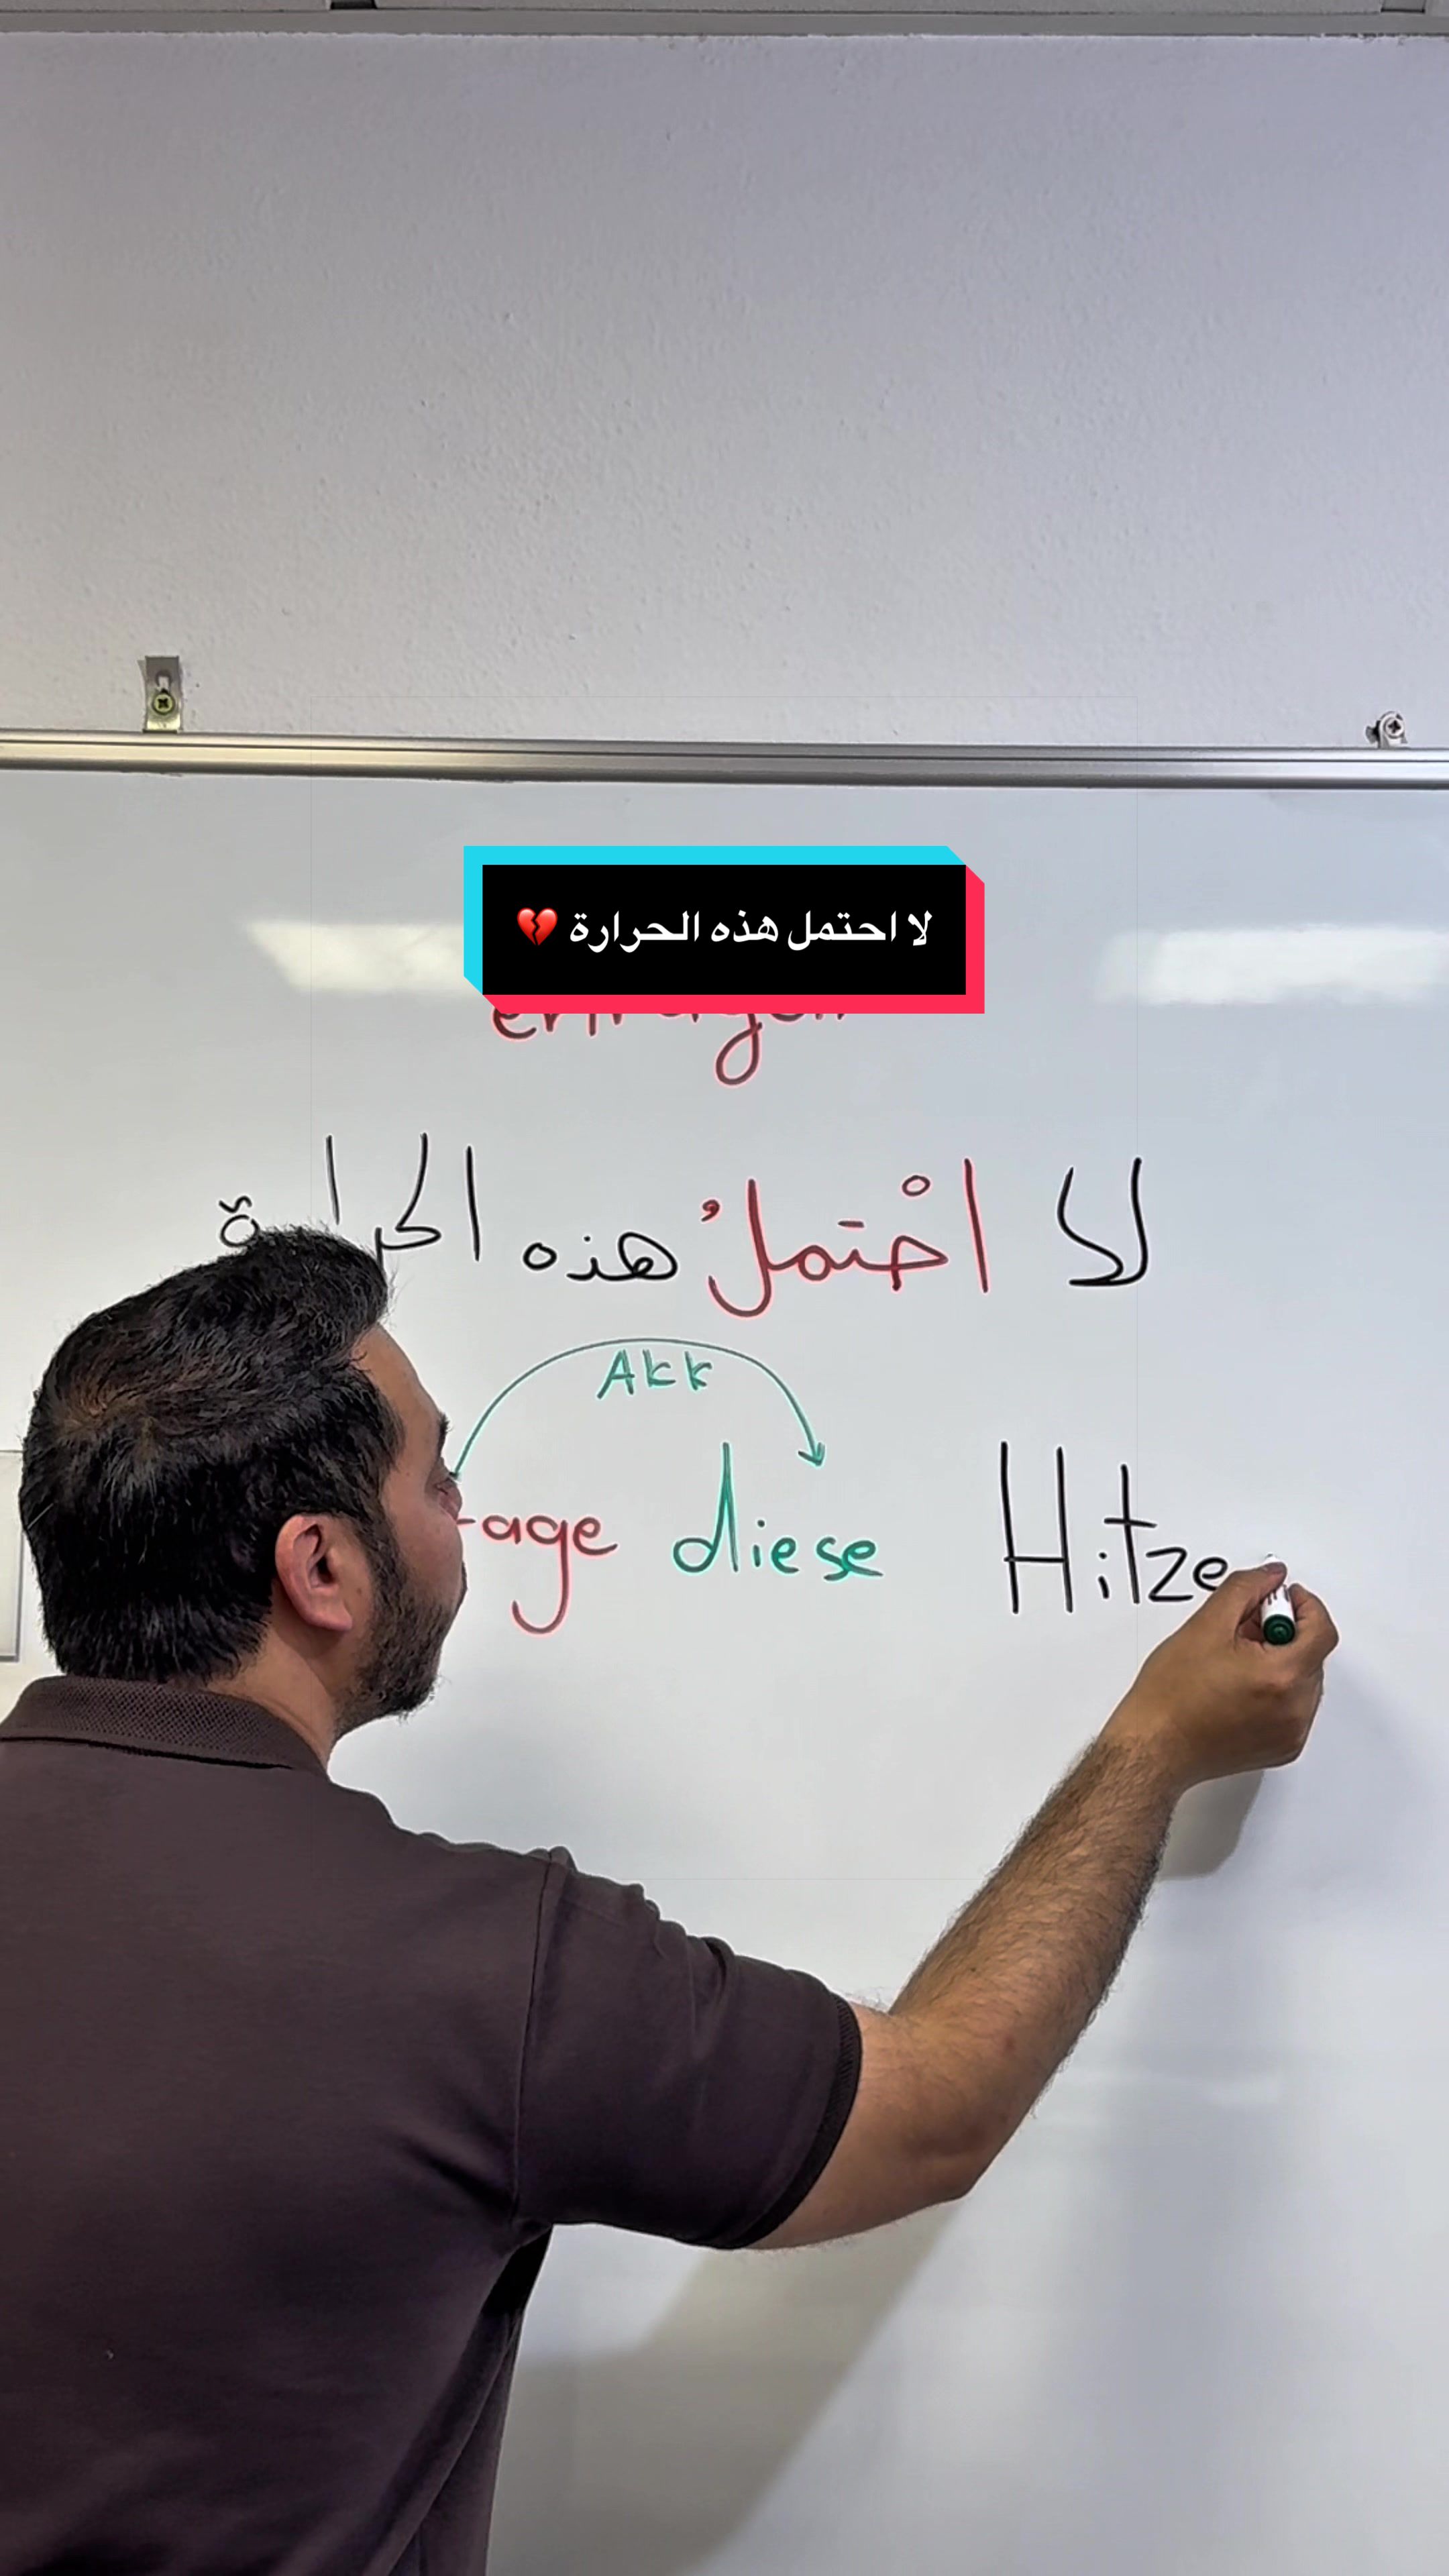 لا احتمل هذه الحرارة 💔
ertragen
لا احْتملُ هذه الحرارة
Akk
-age diese Hitze